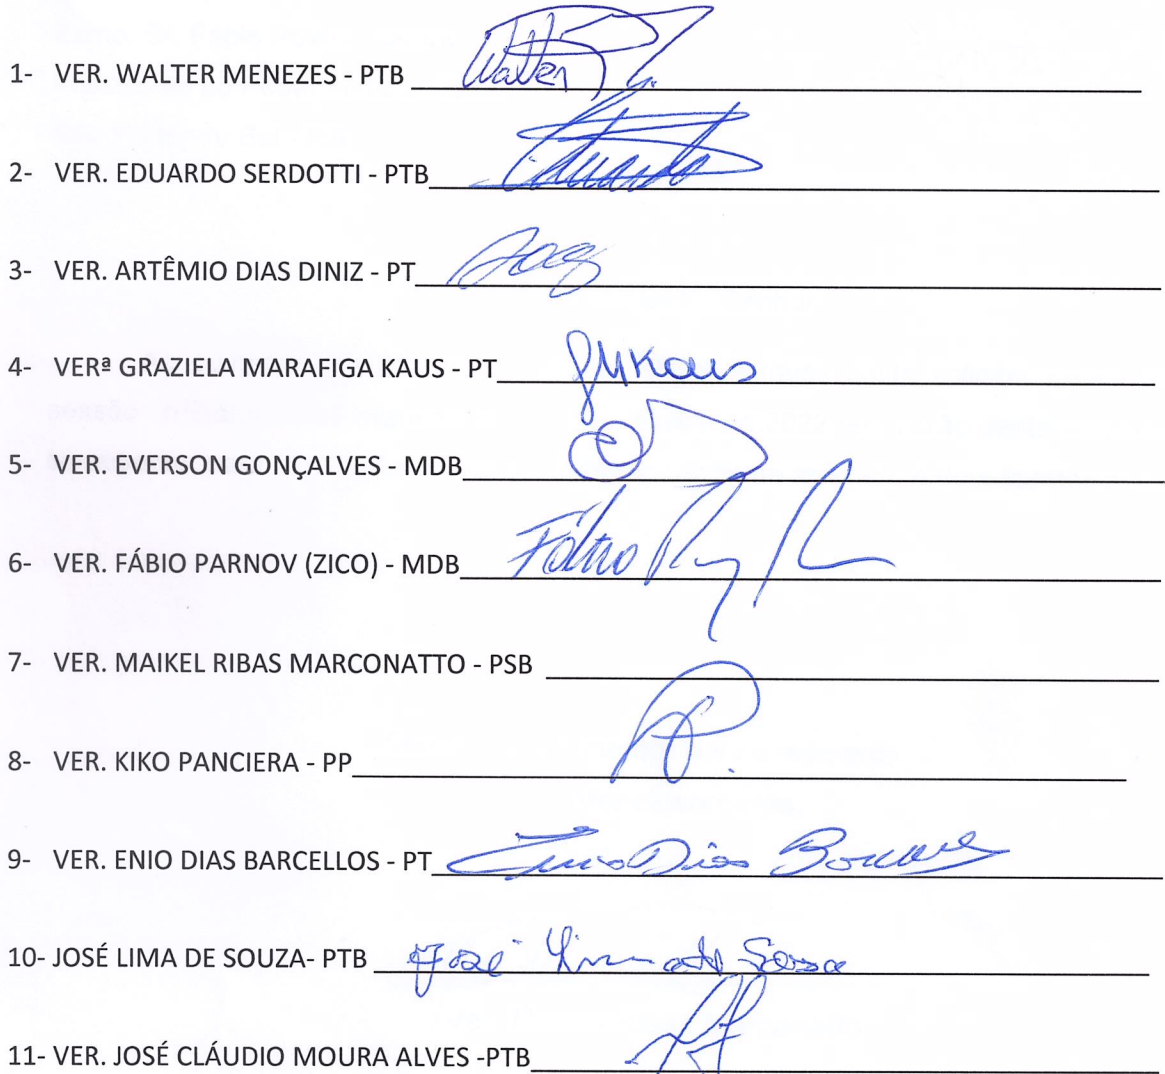 1- VER. WALTER MENEZES - PTB Walter
2- VER. EDUARDO SERDOTTI - PTB Eduardo
3- VER. ARTÊMIO DIAS DINIZ - PT
4- VERª GRAZIELA MARAFIGA KAUS - PT GMKaus
5- VER. EVERSON GONÇALVES - MDB
6- VER. FÁBIO PARNOV (ZICO) - MDB Fábio
7- VER. MAIKEL RIBAS MARCONATTO - PSB
8- VER. KIKO PANCIERA - PP
9- VER. ENIO DIAS BARCELLOS - PT Enio Dias
10- JOSÉ LIMA DE SOUZA- PTB José Lima de Souza
11- VER. JOSÉ CLÁUDIO MOURA ALVES -PTB